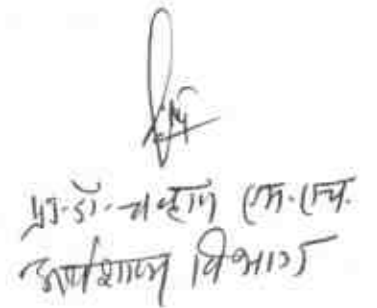 प्रा. डॉ. चव्हाण एम. एच.
अर्थशास्त्र विभाग